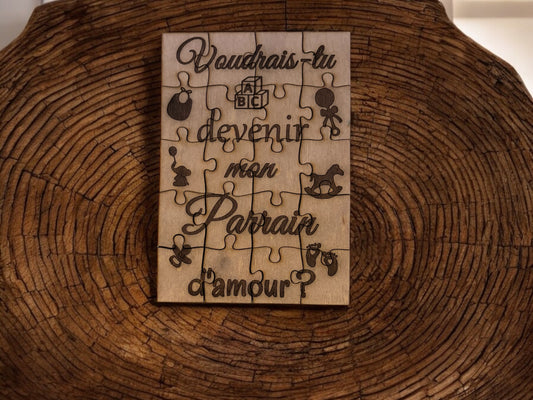 Voudrais-tu
A
B C
devenir
mon
Parrain
d'amour ?